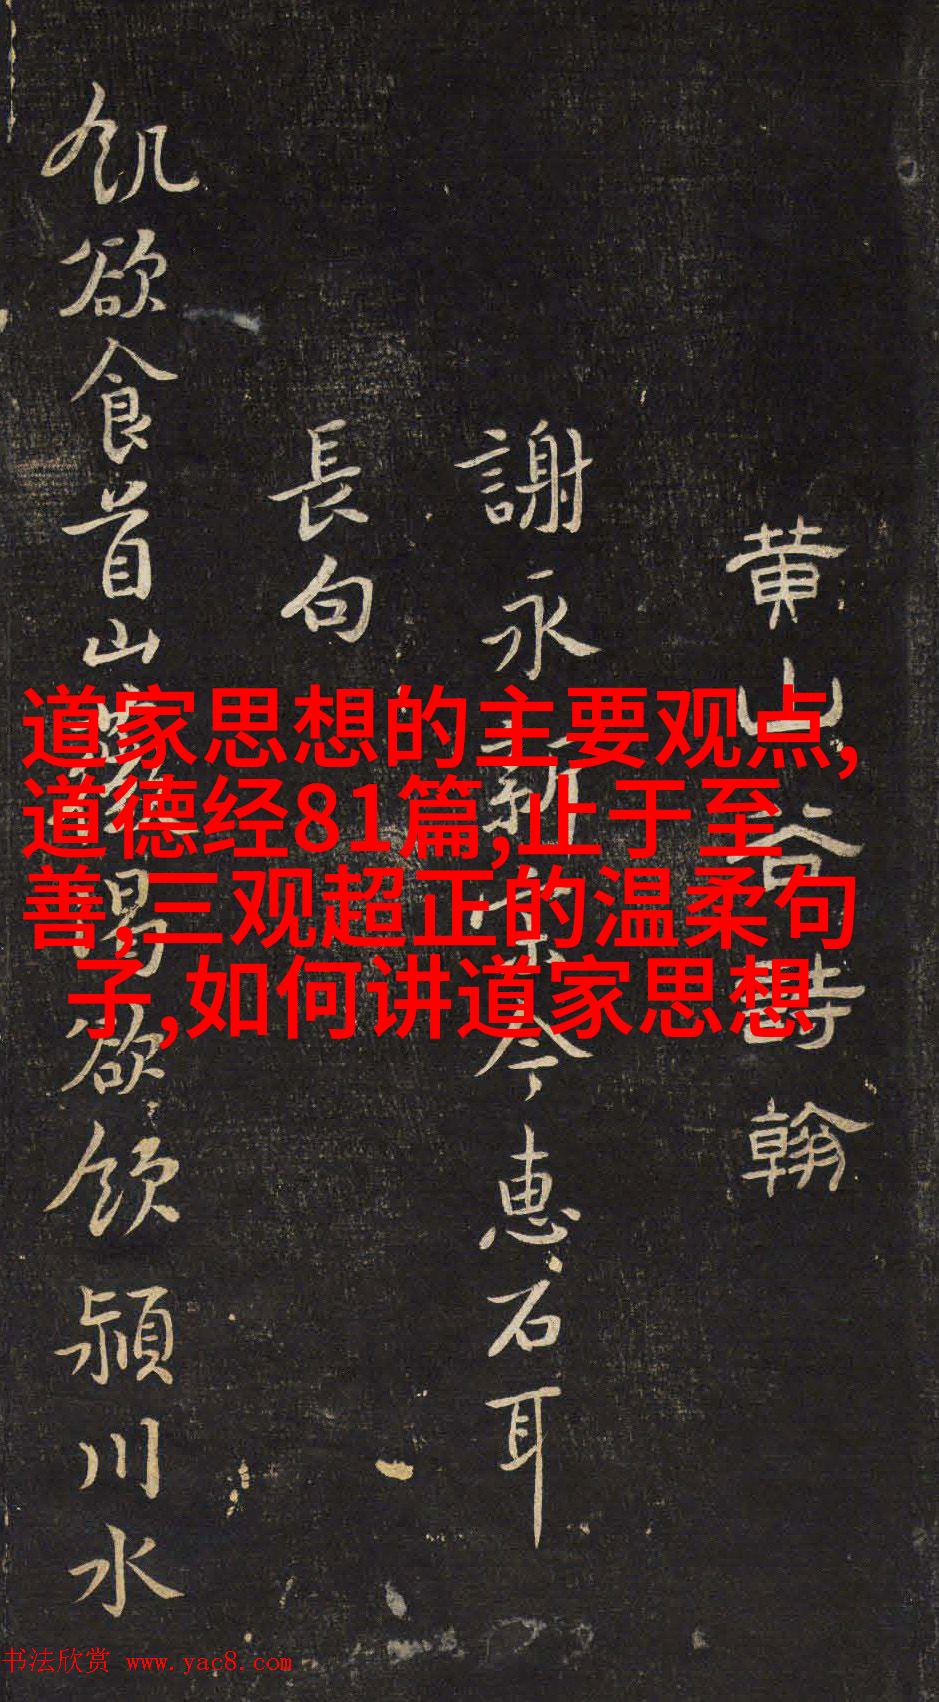 黄山谷詩翰
謝永新令惠石耳
長句
飢欲食首山薇渴欲飲潁川水
道家思想的主要观点,
道德经81篇,止于至
善,三观超正的温柔句
子,如何讲道家思想
书法欣赏 www.yac8.com